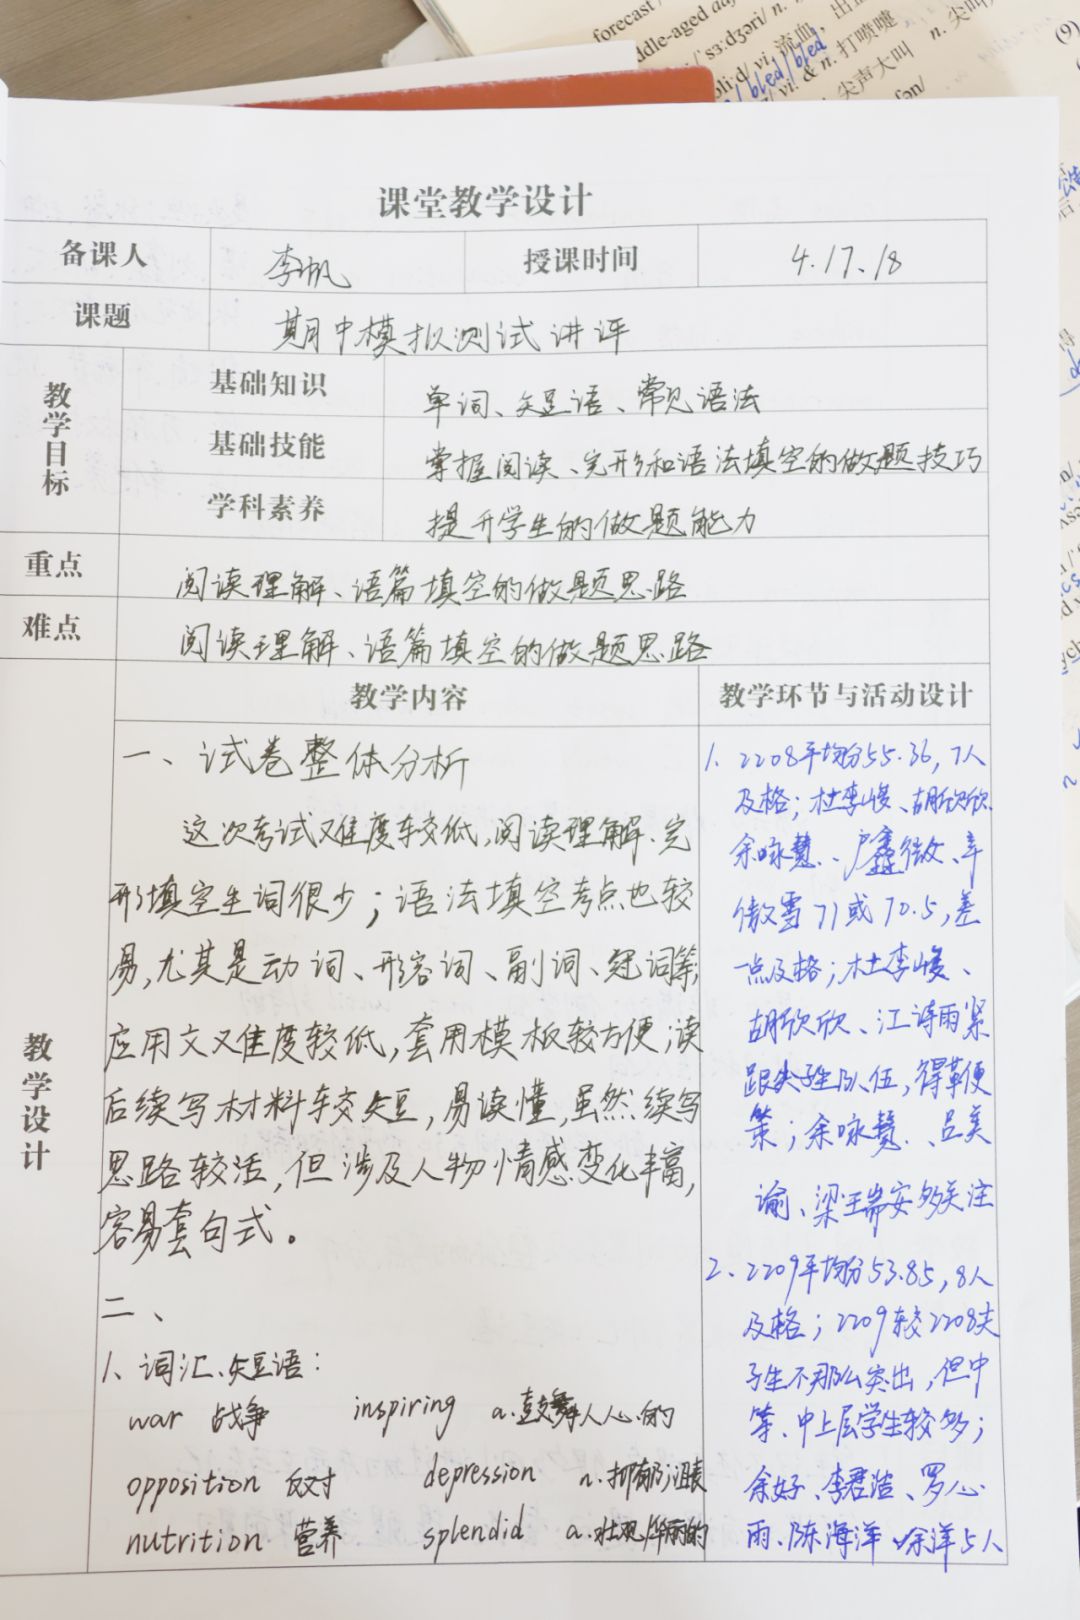 forecast /
ddle-aged adj
/ˈsɜːdʒəri/ n.
vi. 流血
bled/bled
vi. & n. 打喷嚏
尖声大叫 n. 尖叫
(9)
课堂教学设计
备课人 李帆 授课时间 4.17、18
课题 期中模拟测试讲评
教学目标
基础知识 单词、短语、常见语法
基础技能 掌握阅读、完形和语法填空的做题技巧
学科素养 提升学生的做题能力
重点 阅读理解、语篇填空的做题思路
难点 阅读理解、语篇填空的做题思路
教学设计
教学内容
一、试卷整体分析
这次考试难度较低,阅读理解、完
形填空生词很少;语法填空考点也较
易,尤其是动词、形容词、副词、冠词等;
应用文难度较低,套用模板较方便;读
后续写材料较短,易读懂,虽然续写
思路较活,但涉及人物情感变化丰富,
容易套句式。
二、
1、词汇、短语:
war 战争 inspiring a.鼓舞人心的
opposition 反对 depression n.抑郁;沮丧
nutrition 营养 splendid a.壮观华丽的
教学环节与活动设计
1. 2208平均分55.36,7人
及格;杜李媛、胡欣欣、
余咏慧、卢鑫微、辛
傲雪71或70.5,差
一点及格;杜李媛、
胡欣欣、江诗雨紧
跟尖子生队伍,得鞭
策;余咏慧、吕美
谕、梁王瑞安多关注
2、2209平均分53.85,8人
及格;2209较2208尖
子生不那么突出,但中
等、中上层学生较多;
余好、李君洁、罗心
雨、陈海洋、徐洋5人